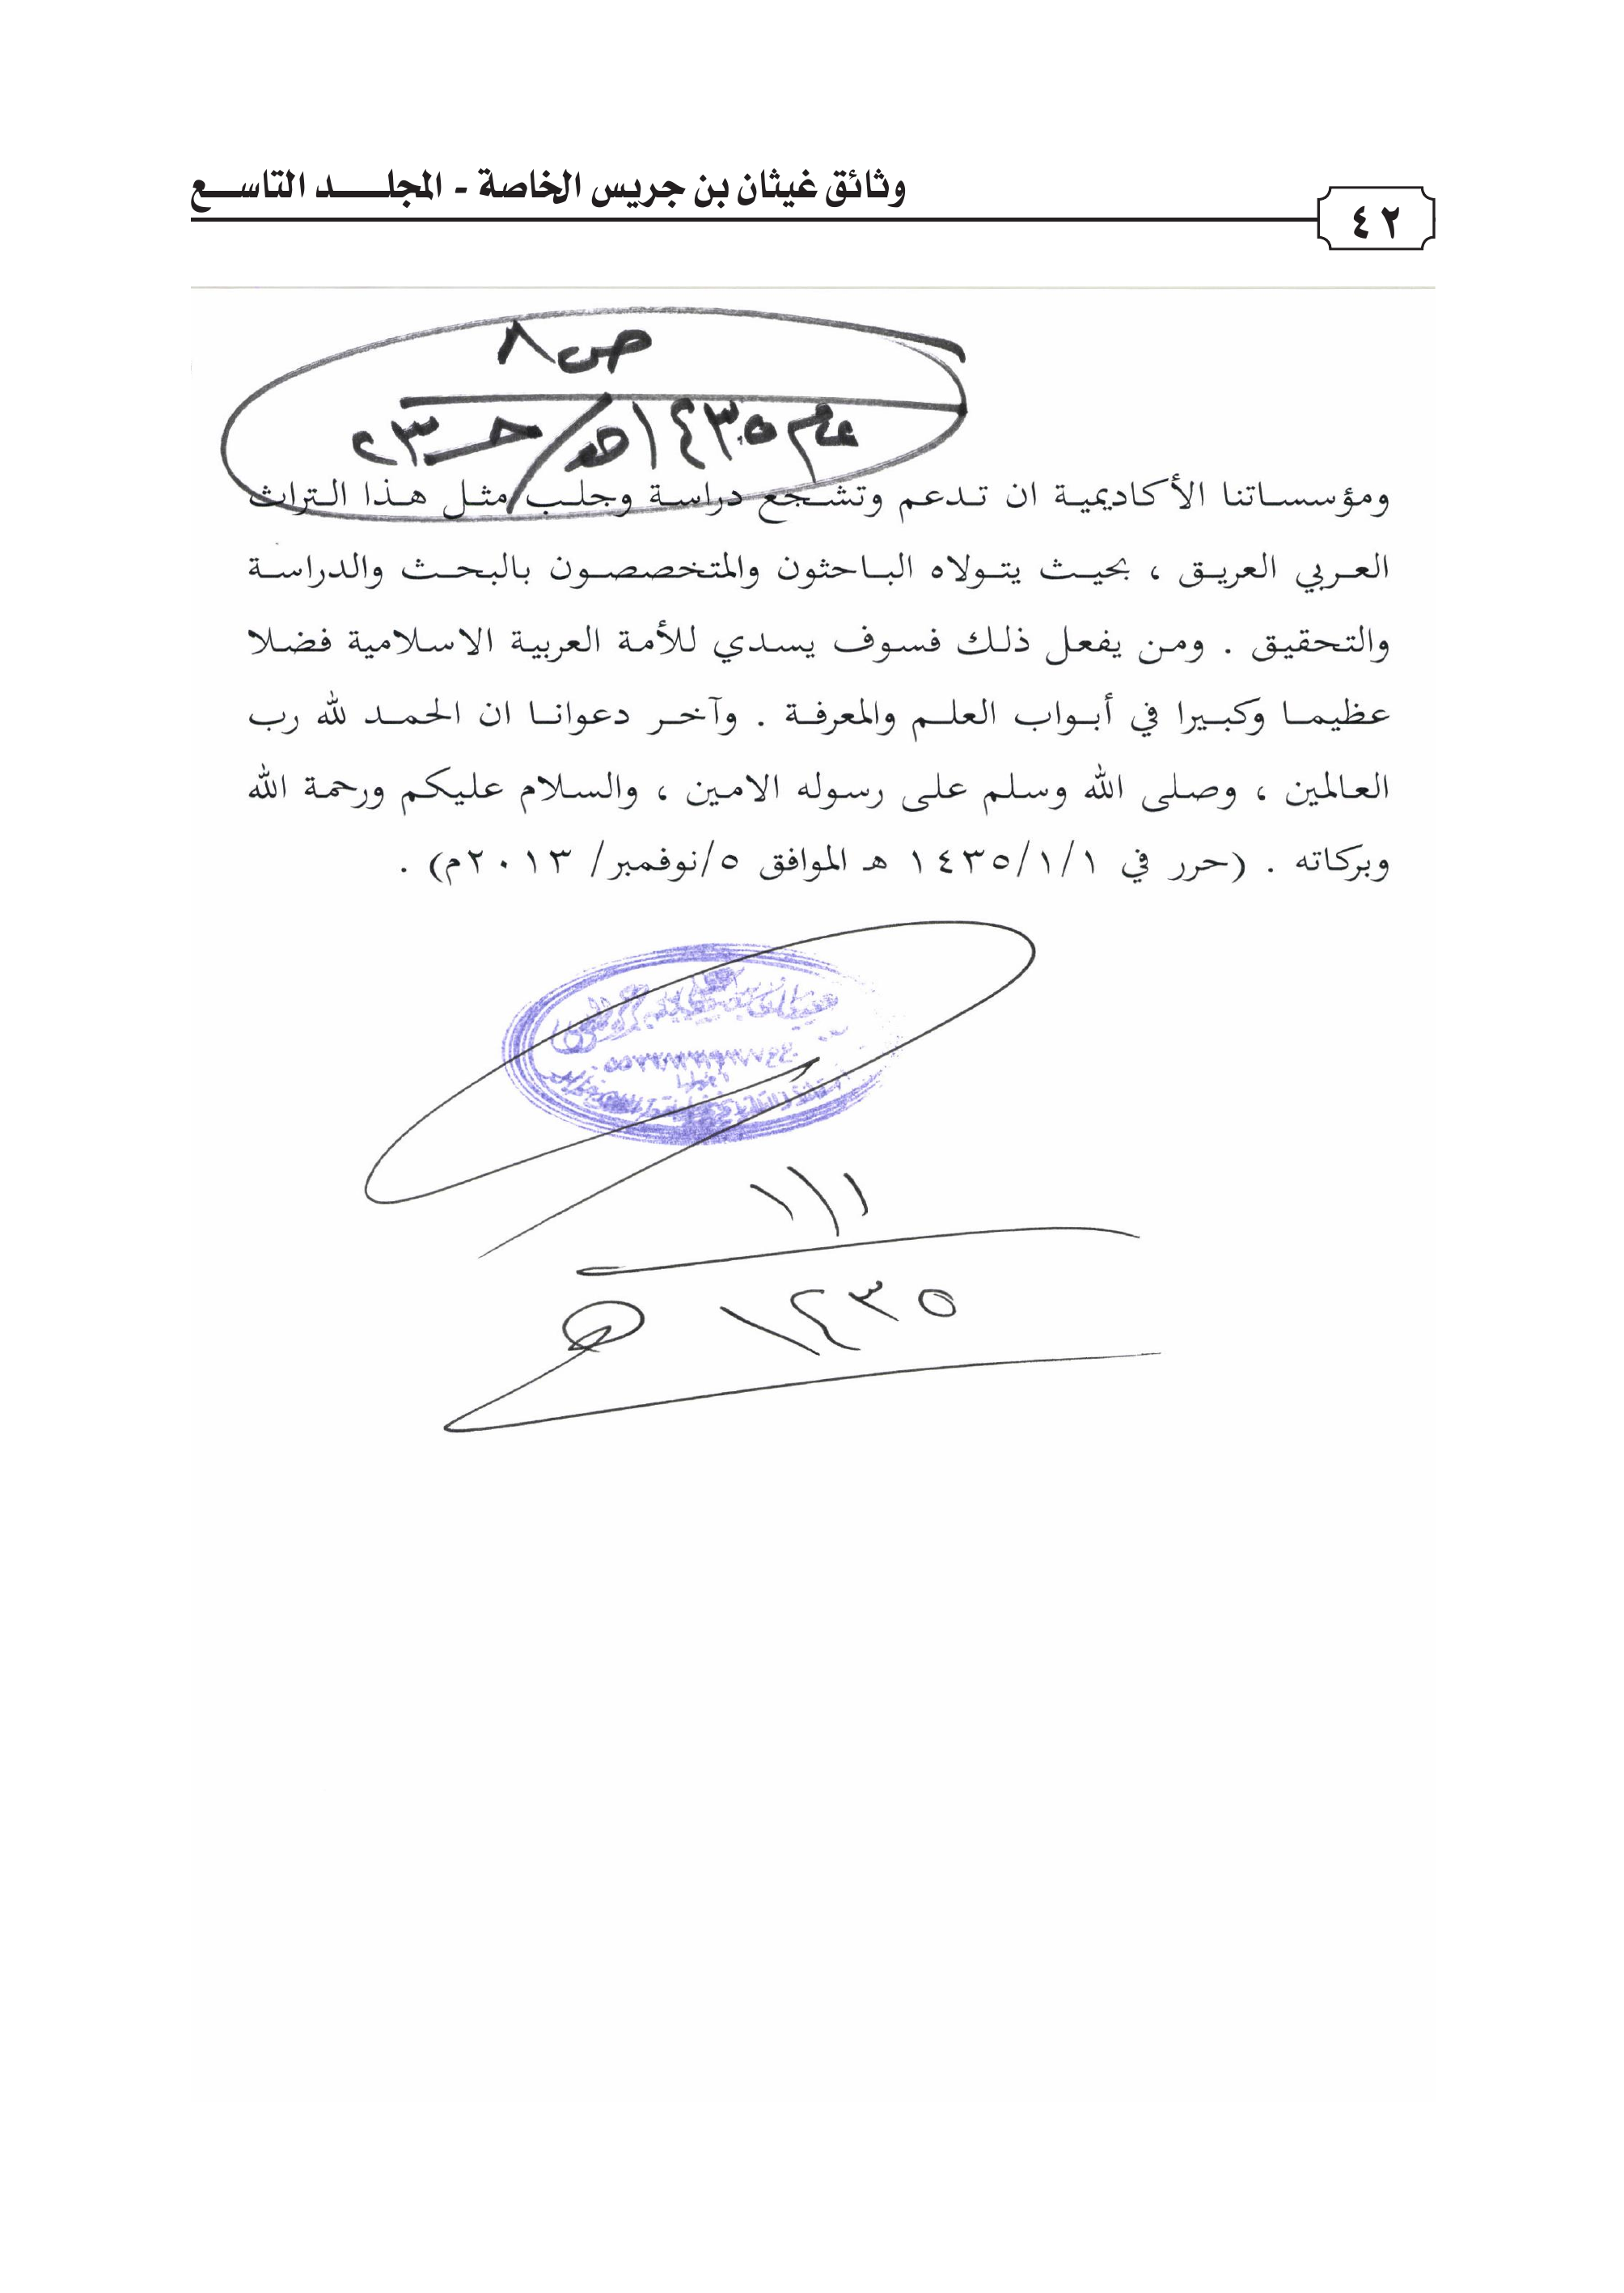 وثائق غيثان بن جريس الخاصة - المجلد التاسع
٤٢
ص ٨
عام ١٤٣٥هـ / حـ ٢٣
ومؤسساتنا الأكاديمية ان تدعم وتشجع دراسة وجلب مثل هذا التراث
العربي العريق ، بحيث يتولاه الباحثون والمتخصصون بالبحث والدراسة
والتحقيق . ومن يفعل ذلك فسوف يسدي للأمة العربية الاسلامية فضلا
عظيما وكبيرا في أبواب العلم والمعرفة . وآخر دعوانا ان الحمد لله رب
العالمين ، وصلى الله وسلم على رسوله الامين ، والسلام عليكم ورحمة الله
وبركاته . (حرر في ١/١/١٤٣٥ هـ الموافق ٥/نوفمبر/ ٢٠١٣م) .
١/١
١٤٣٥ هـ